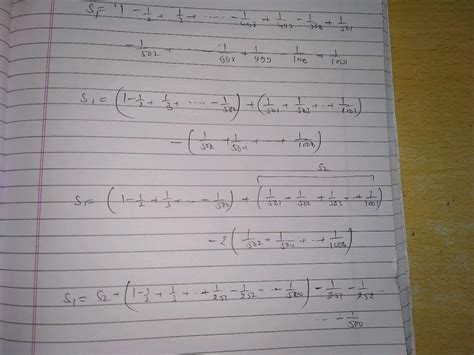 S₁ = 1 - 1/2 + 1/3 + ..... - 1/498 + 1/499 - 1/500 + 1/501
- 1/502 + ..... + 1/999 - 1/1000 + 1/1001
S₁ = (1 - 1/2 + 1/3 + .... - 1/500) + (1/501 + 1/503 + .. + 1/1001)
- (1/502 + 1/504 + .... + 1/1000)
S2
S₁ = (1 - 1/2 + 1/3 + .... - 1/500) + (1/501 + 1/502 + 1/503 .. + 1/1001)
- 2 (1/502 + 1/504 + .. + 1/1000)
S₁ = S2 + (1 - 1/2 + 1/3 + .. + 1/251 - 1/252 + .. + 1/500) - 1/251 - 1/252
.. - 1/500